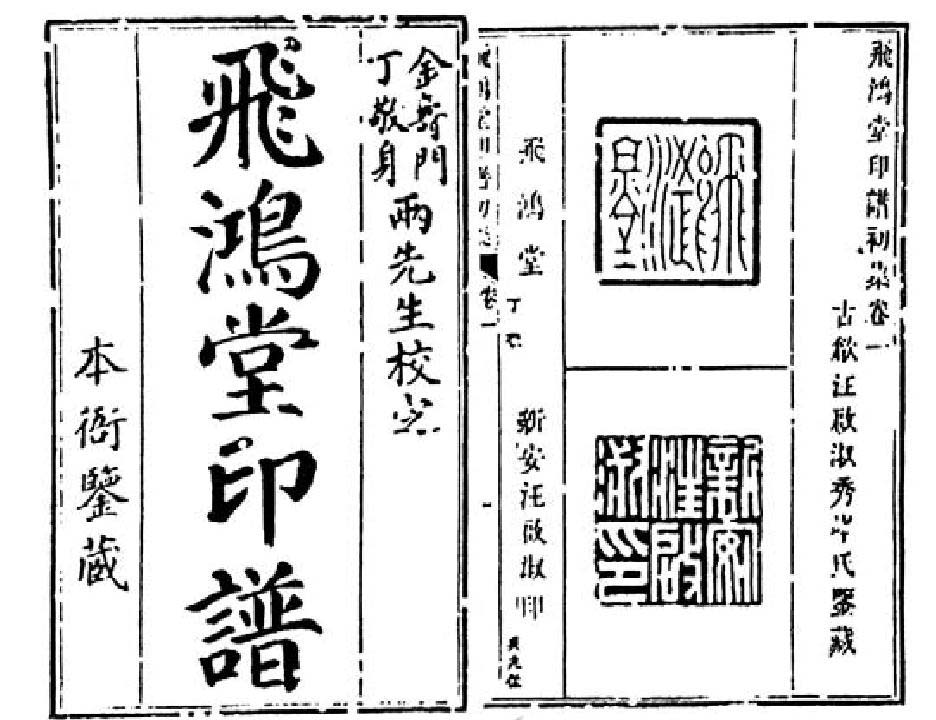 飛鴻堂印譜初集卷一
古歙汪啟淑秀峰氏鑒藏
飛鴻堂
新安汪啟淑印
飛鴻堂
丁敬
新安汪啟淑印
卷一
金壽門
丁敬身
兩先生校定
飛鴻堂印譜
本衙鑒藏